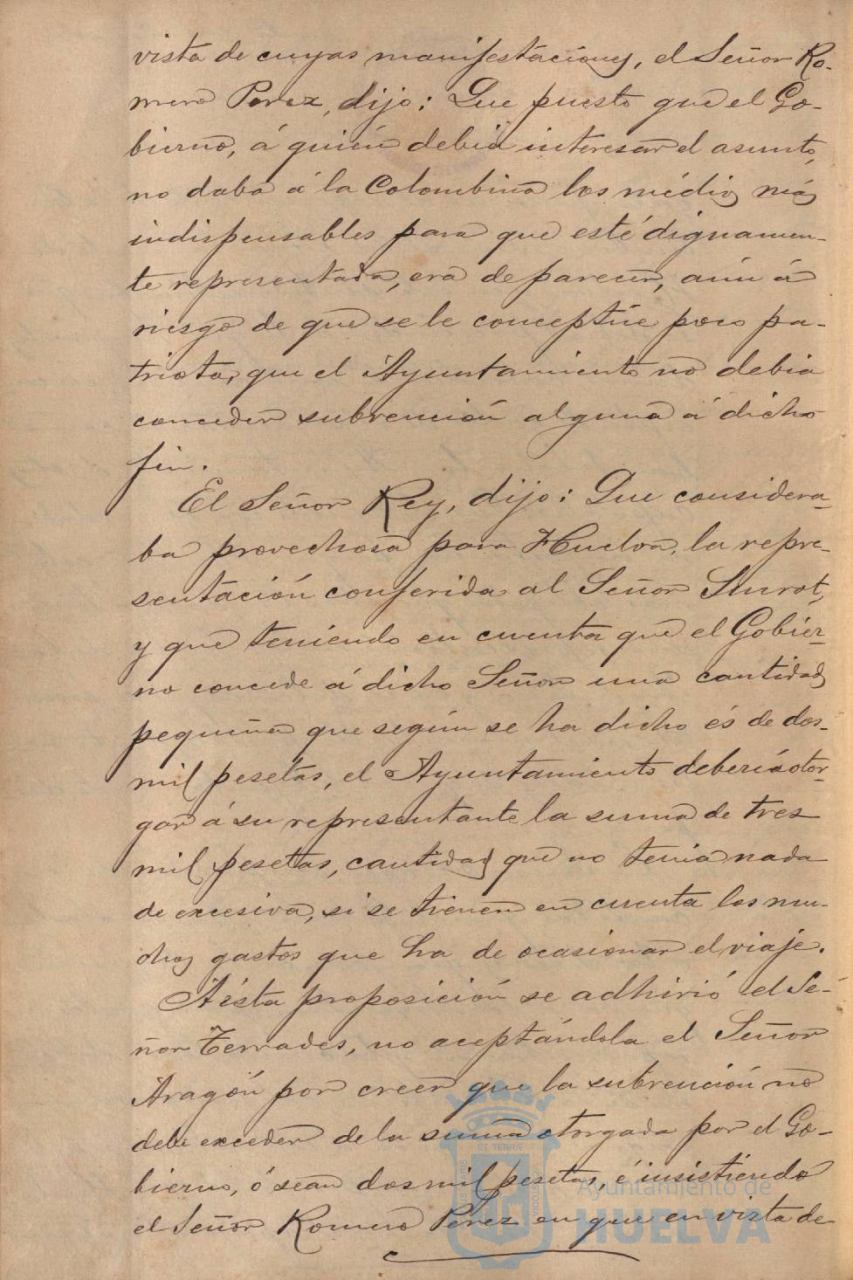 vista de cuyas manifestaciones, el Señor Ro-
mero Perez, dijo: Que puesto que el Go-
bierno, á quién debia interesar el asunto,
no daba á la Colombina los médios más
indispensables para que esté dignamen-
te representada, era de parecer, aún á
riesgo de que se le conceptúe poco pa-
triota, que el Ayuntamiento no debia
conceder subvención alguna á dicho
fin.
El Señor Rey, dijo: Que considera-
ba provechosa para Huelva, la repre-
sentación conferida al Señor Surot,
y que teniendo en cuenta que el Gobier-
no concede á dicho Señor una cantidad
pequeña que según se ha dicho és de dos-
mil pesetas, el Ayuntamiento deberia otor-
gar á su representante la suma de tres
mil pesetas, cantidad que no tenia nada
de excesiva, si se tienen en cuenta los mu-
chos gastos que ha de ocasionar el viaje.
A ésta proposición se adhirió el Se-
ñor Terrades, no aceptándola el Señor
Aragón por creer que la subvención no
debe exceder de la suma otorgada por el Go-
bierno, ó sean dos mil pesetas, é insistiendo
el Señor Romero Perez en que en vista de
Ayuntamiento de
HUELVA